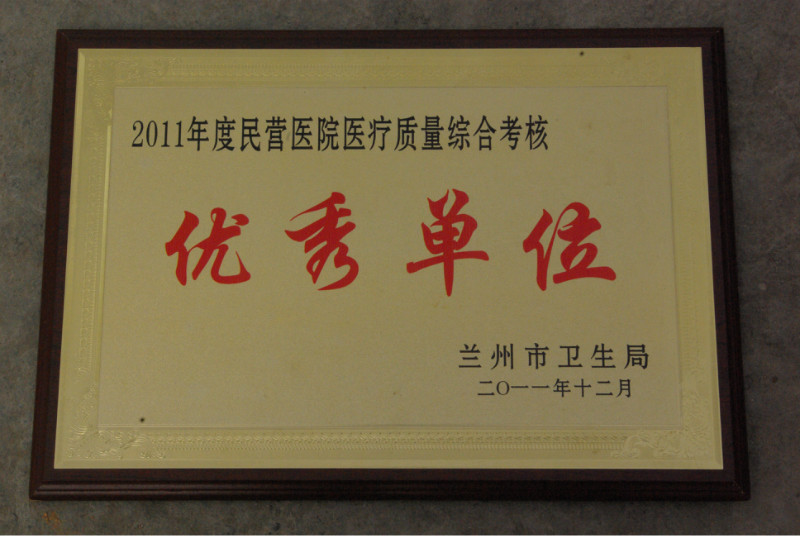 2011年度民营医院医疗质量综合考核
优秀单位
兰州市卫生局
二〇一一年十二月